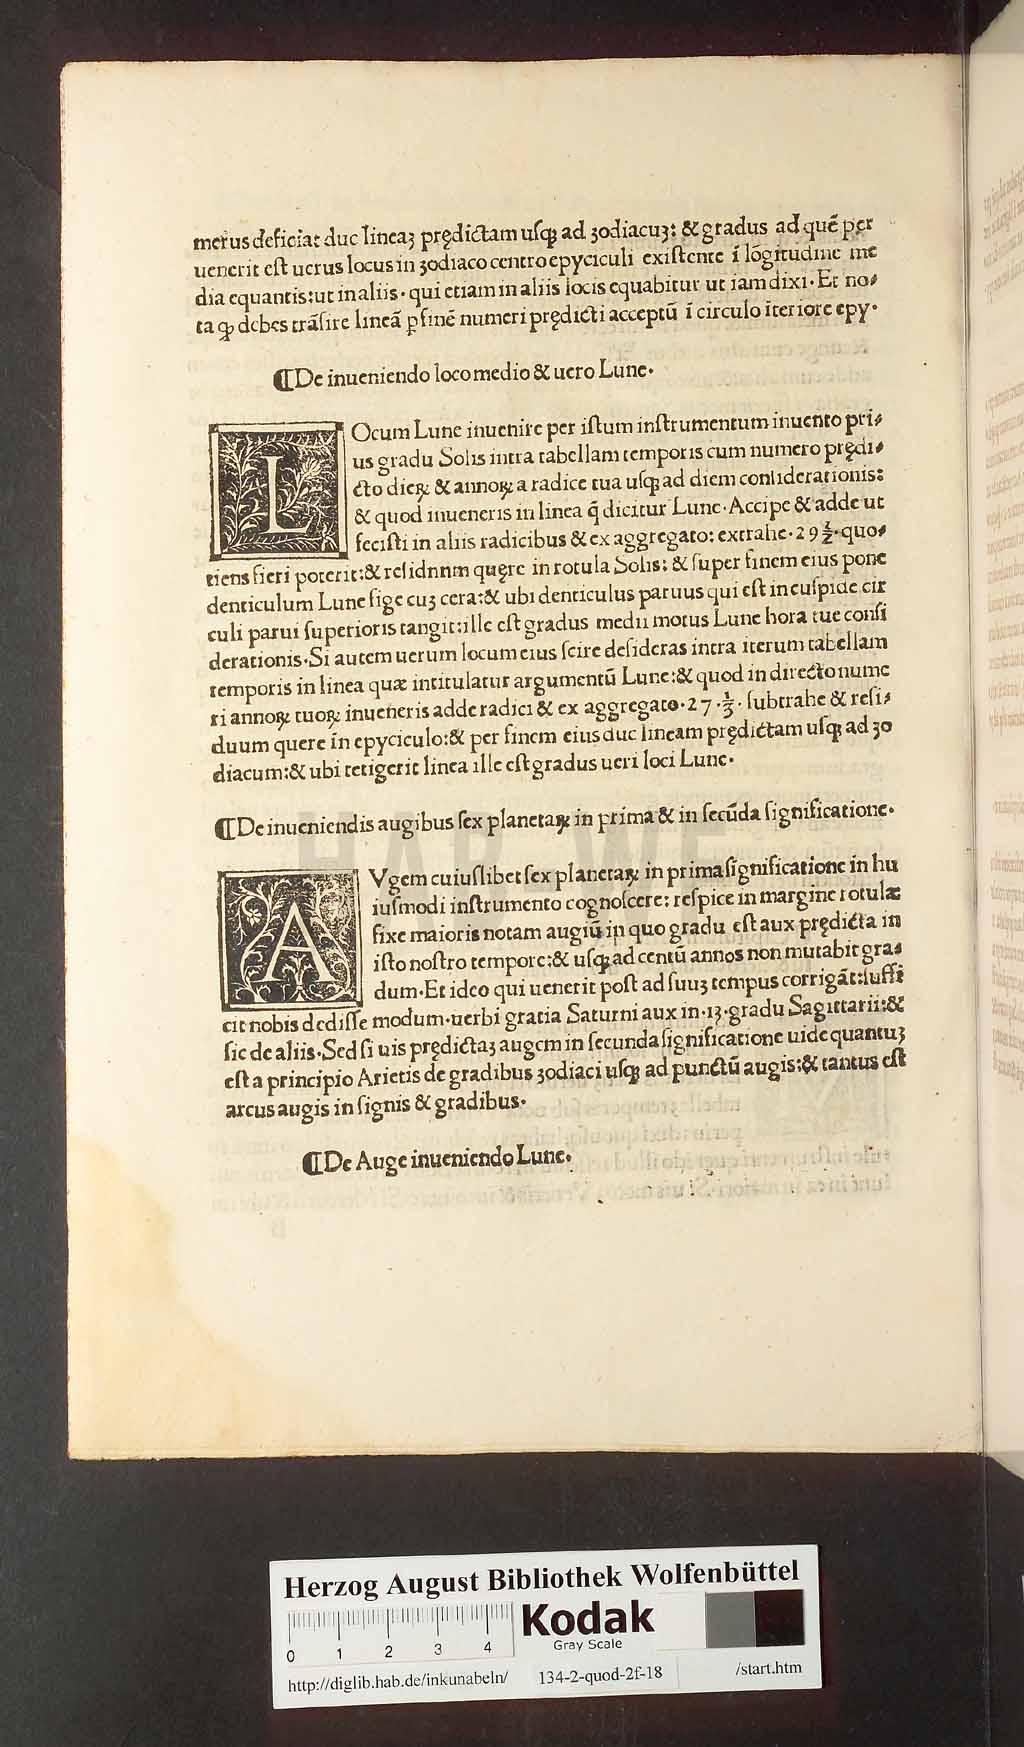 merus deficiat duc lineaʒ prędictam uſqꝫ ad ʒodiacuʒ: & gradus ad quē per
uenerit eſt uerus locus in ʒodiaco centro epyciculi exiſtente ī lōgitudine me
dia equantis: ut in aliis. qui etiam in aliis locis equabitur ut iam dixi. Et no⸗
ta ꝙ debes trāſire lineā ꝑ finē numeri prędicti acceptū ī circulo īteriore epy.
¶De inueniendo loco medio & uero Lune.
LOcum Lune inuenire per iſtum inſtrumentum inuento pri⸗
us gradu Solis intra tabellam temporis cum numero prędi⸗
cto dieꝝ & annoꝝ a radice tua uſqꝫ ad diem conſiderationis:
& quod inueneris in linea q̄ dicitur Lune. Accipe & adde ut
feciſti in aliis radicibus & ex aggregato: extrahe. 29 ½. quo⸗
tiens fieri poterit: & reſidnnm quęre in rotula Solis: & ſuper finem eius pone
denticulum Lune fige cuʒ cera: & ubi denticulus paruus qui eſt in cuſpide cir
culi parui ſuperioris tangit: ille eſt gradus medii motus Lune hora tue conſi
derationis. Si autem uerum locum eius ſcire deſideras intra iterum tabellam
temporis in linea quæ intitulatur argumentū Lune: & quod in directo nume
ri annoꝝ tuoꝝ inueneris adde radici & ex aggregato. 27. ⅓. ſubtrahe & reſi⸗
duum quere in epyciculo: & per finem eius duc lineam prędictam uſqꝫ ad ʒo
diacum: & ubi tetigerit linea ille eſt gradus ueri loci Lune.
¶De inueniendis augibus ſex planetaꝝ in prima & in ſecūda ſignificatione.
AVgem cuiuſlibet ſex planetaꝝ in prima ſignificatione in hu
iuſmodi inſtrumento cognoſcere: reſpice in margine rotulæ
fixe maioris notam augiū in quo gradu eſt aux prędicta in
iſto noſtro tempore: & uſqꝫ ad centū annos non mutabit gra⸗
dum. Et ideo qui uenerit poſt ad ſuuʒ tempus corrigāt: ſuffi
cit nobis dediſſe modum. uerbi gratia Saturni aux in. 13. gradu Sagittarii: &
ſic de aliis. Sed ſi uis prędictaʒ augem in ſecunda ſignificatione uide quantuʒ
eſt a principio Arietis de gradibus ʒodiaci uſqꝫ ad punctū augis: & tantus eſt
arcus augis in ſignis & gradibus.
¶De Auge inueniendo Lune.
HAB-WF
Herzog August Bibliothek Wolfenbüttel
Kodak
Gray Scale
0 1 2 3 4
http://diglib.hab.de/inkunabeln/ 134-2-quod-2f-18 /start.htm